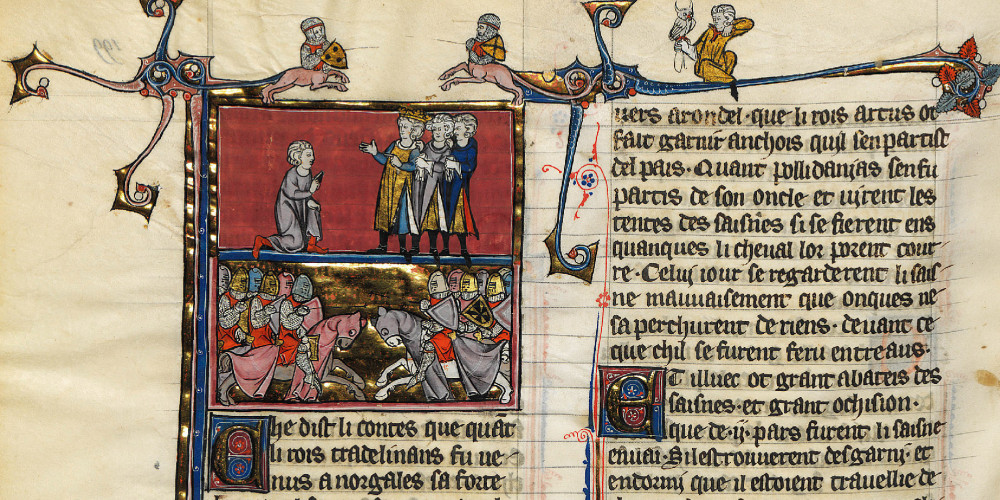 Che dist li contes que quāt
li rois tradelinans fu ve-
nus a norgales sa forte
uers arondel · que li rois artus ot
fait garnir anchois quil sen partist
del pais. Quant pollidamas sen fu
partis de son oncle et uirent les
tentes des saisnes si se fierent ens
quanques li cheual lor porent cour-
re. Celui iour se regarderent li sais-
ne mauuaisement que onques ne
sa perchurent de riens · deuant ce
que chil se furent feru entreaus ·
Et illuec ot grant abateis des
saisnes · et grant ochision ·
que de · ij · pars furent li saisne
enuai · Si les trouuerent desgarni · et
endormi que il estoient trauellie de